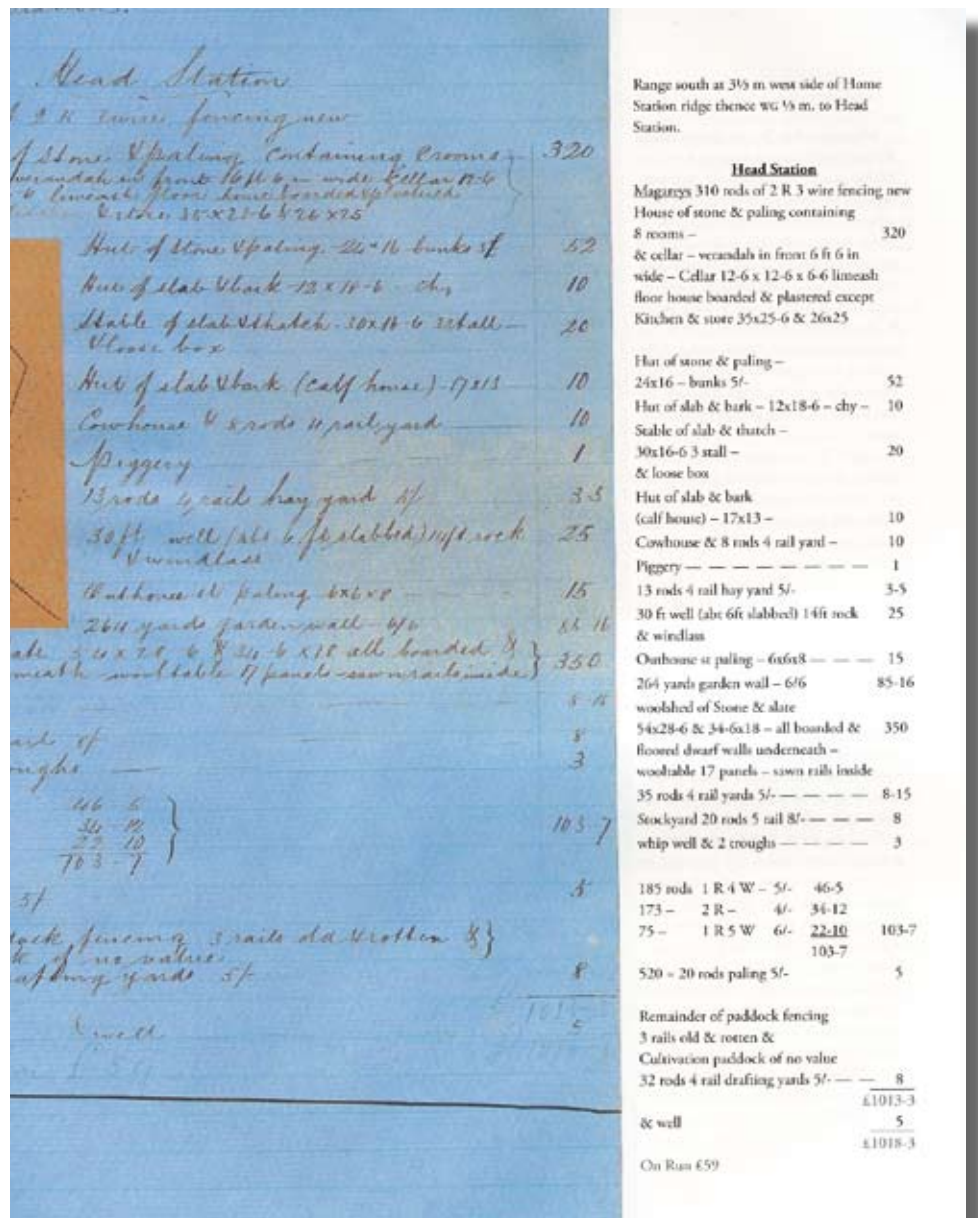 Head Station
2 R wire fencing new
of Stone & paling containing 8 rooms 320
verandah in front 16 ft 6 in wide Cellar 12-6
6 limeash floor house boarded & plastered
& store 35x25-6 & 26x25
Hut of Stone & paling - 24x16 bunks 5/ 52
Hut of slab & bark - 12x18-6 - chy 10
Stable of slab & thatch - 30x16-6 3 stall - 20
& loose box
Hut of slab & bark (calf house) - 17x13 10
Cowhouse & 8 rods 4 rail yard 10
Piggery 1
13 rods 4 rail hay yard 5/ 3-5
30 ft well (abt 6 ft slabbed) 14ft rock 25
& windlass
Outhouse st paling 6x6x8 15
264 yards garden wall - 6/6 85-16
54x28-6 & 34-6x18 all boarded & } 350
wooltable 17 panels - sawn rails inside)
8-15
8
3
46-5
34-12
22-10
103-7 } 103-7
5/ 5
fencing 3 rails old & rotten & }
of no value
drafting yards 5/- 8
& well 5
Range south at 3½ m west side of Home
Station ridge thence WG ⅓ m. to Head
Station.
Head Station
Magareys 310 rods of 2 R 3 wire fencing new
House of stone & paling containing
8 rooms – 320
& cellar – verandah in front 6 ft 6 in
wide – Cellar 12-6 x 12-6 x 6-6 limeash
floor house boarded & plastered except
Kitchen & store 35x25-6 & 26x25
Hut of stone & paling –
24x16 – bunks 5/- 52
Hut of slab & bark – 12x18-6 – chy – 10
Stable of slab & thatch –
30x16-6 3 stall – 20
& loose box
Hut of slab & bark
(calf house) – 17x13 – 10
Cowhouse & 8 rods 4 rail yard – 10
Piggery — — — — — — — — 1
13 rods 4 rail hay yard 5/- 3-5
30 ft well (abt 6ft slabbed) 14ft rock 25
& windlass
Outhouse st paling – 6x6x8 — — — 15
264 yards garden wall – 6/6 85-16
woolshed of Stone & slate
54x28-6 & 34-6x18 – all boarded & 350
floored dwarf walls underneath –
wooltable 17 panels – sawn rails inside
35 rods 4 rail yards 5/- — — — — 8-15
Stockyard 20 rods 5 rail 8/- — — — 8
whip well & 2 troughs — — — — 3
185 rods 1 R 4 W – 5/- 46-5
173 – 2 R – 4/- 34-12
75 – 1 R 5 W 6/- 22-10 103-7
103-7
520 = 20 rods paling 5/- 5
Remainder of paddock fencing
3 rails old & rotten &
Cultivation paddock of no value
32 rods 4 rail drafting yards 5/- — — 8
£1013-3
& well 5
£1018-3
On Run £59